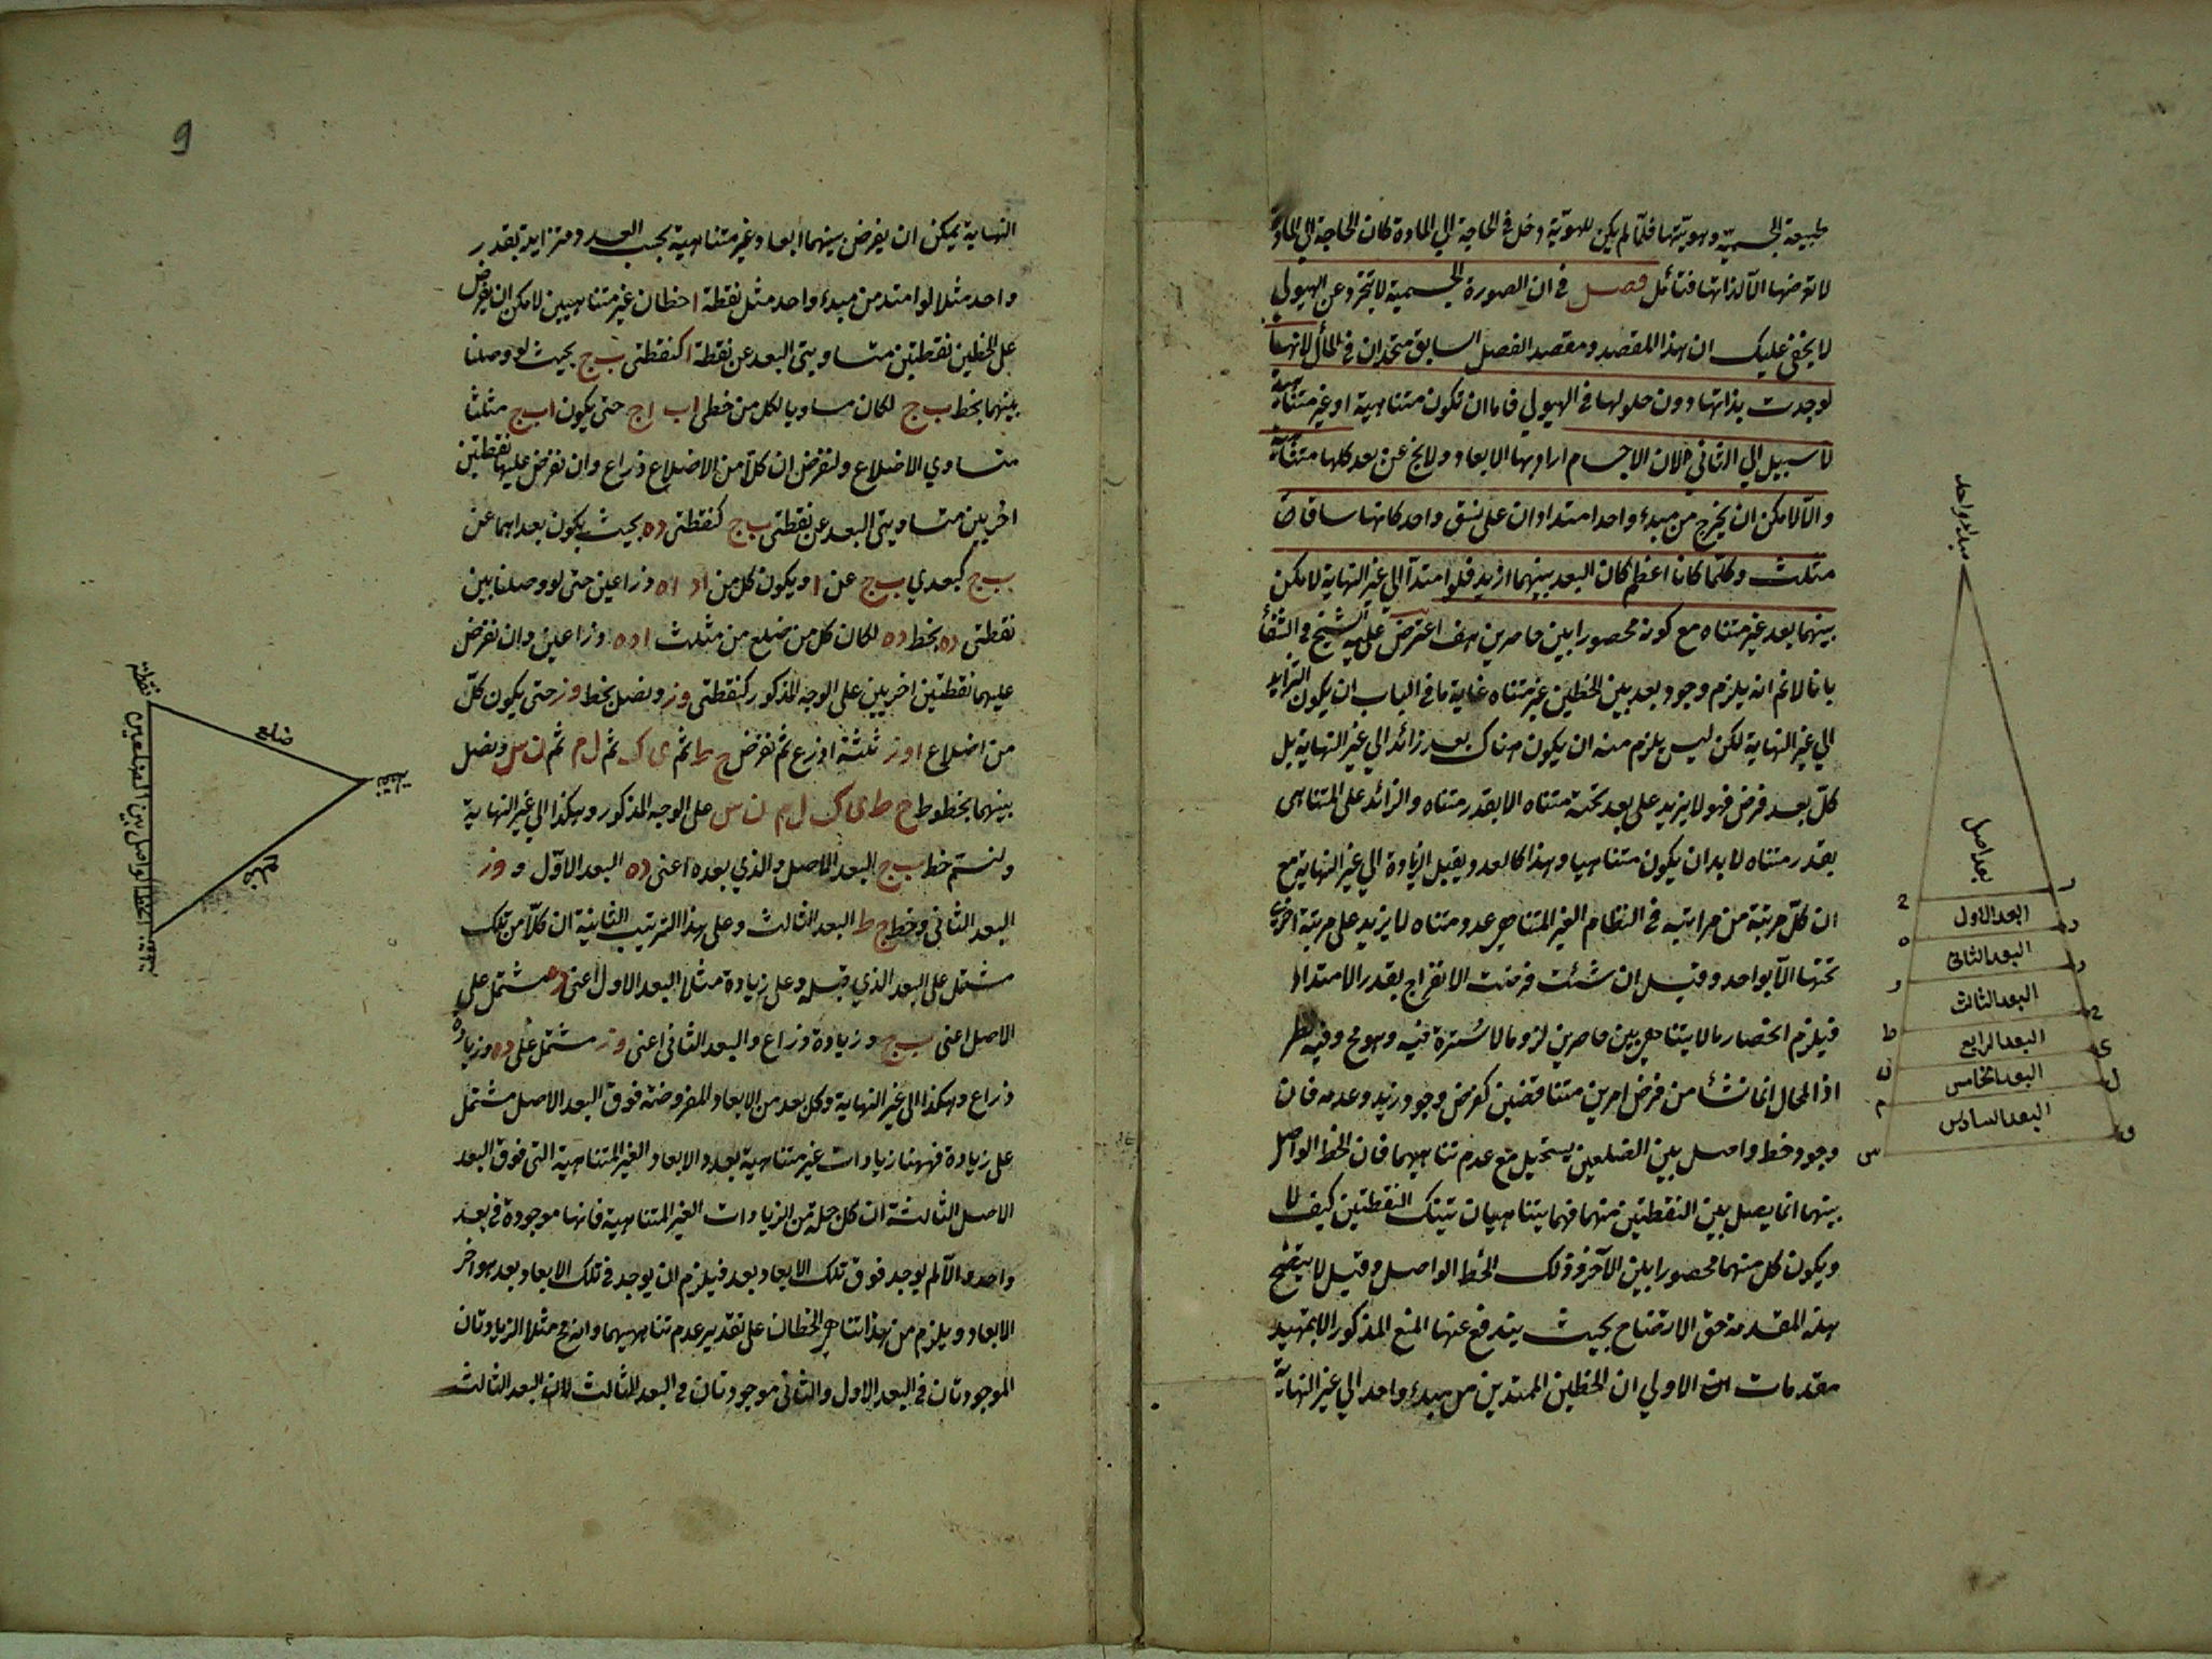 طبيعة الجسمية وهويتها فلما لم يكن للهوية دخل فى الحاجة الي المادة كان الحاجة الي المادة
لا تعرضها الا لذاتها فتأمل فصل فى ان الصورة الجسمية لا تتجرد عن الهيولي
لا يخفى عليك ان هذا المقصد ومقصد الفصل السابق متحدان فى المأل لانها
لو وجدت بذاتها دون حلولها فى الهيولي فاما ان تكون متناهية او غير متناهية
لا سبيل الي الثاني لان الاجسام اراد بها الابعاد ولا يخ عن بعد كلها متناهية
والا لامكن ان يخرج من مبدء واحد امتدادان على نسق واحد كانهما ساقا
مثلث وكلما كانا اعظم كان البعد بينهما ازيد فلو امتدا الي غير النهاية لامكن
بينهما بعد غير متناه مع كونه محصورا بين حاصرين هف اعترض عليه الشيخ فى الشفا
بانا لانم انه يلزم وجود بعد بين الخطين غير متناه غاية ما فى الباب ان يكون التزايد
الي غير النهاية لكن ليس يلزم منه ان يكون هناك بعد زائد الي غير النهاية بل
كل بعد فرض فهو لا يزيد على بعد تحته متناه الا بقدر متناه والزائد على المتناهى
بقدر متناه لا بد ان يكون متناهيا وهذا كالعدد يقبل الزيادة الي غير النهاية مع
ان كل مرتبة من مراتبه فى النظام الغير المتناهي عدد متناه لا يزيد على مرتبة اخرى
تحتها الا بواحد وقيل ان شئت فرضت الانفراج بقدر الامتداد
فيلزم انحصار ما لا يتناهي بين حاصرين لزوما لا سترة فيه وهو مح وفيه نظر
اذ المحال انما نشأ من فرض امرين متناقضين كفرض وجود زيد وعدمه فان
وجود خط واصل بين الضلعين يستحيل مع عدم تناهيهما فان الخط الواصل
بينهما انما يصل بين النقطتين منهما فهما يتناهيان بتينك النقطتين كيف لا
ويكون كل منهما محصورا بين الآخر وذلك الخط الواصل وقيل لا يتضح
هذه المقدمة حق الاتضاح بحيث يندفع عنها المنع المذكور الا بتمهيد
مقدمات الاولي ان الخطين الممتدين من مبدء واحد الي غير النهاية
مبداء واحد
بعد اصل
البعد الاول
البعد الثانى
البعد الثالث
البعد الرابع
البعد الخامس
البعد السادس
9
النهاية يمكن ان يفرض بينهما ابعاد غير متناهية بحسب العدد ومتزايدة بقدر
واحد مثلا لو امتد من مبدء واحد مثل نقطة ا خطان غير متناهيين لامكن ان نفرض
على الخطين نقطتين متساويتى البعد عن نقطة ا كنقطتى ب ج بحيث لو وصلنا
بينهما بخط ب ج لكان مساويا لكل من خطى اب اج حتى يكون اب ج مثلثا
متساوي الاضلاع ولنفرض ان كلا من الاضلاع ذراع وان نفرض عليهما نقطتين
اخريين متساويتى البعد عن نقطتى ب ج كنقطتى ده بحيث يكون بعداهما عن
ب ج كبعدي ب ج عن ا ويكون كل من اد اه ذراعين حتى لو وصلنا بين
نقطتى ده بخط ده لكان كل من ضلع من مثلث اده ذراعين وان نفرض
عليهما نقطتين اخريين على الوجه المذكور كنقطتى وز ونصل بخط وز حتى يكون كل
من اضلاع اوز ثلثة اذرع ثم نفرض ح ط ثم ى ك ثم ل م ثم ن س ونصل
بينهما بخطوط ح ط ى ك ل م ن س على الوجه المذكور وهكذا الي غير النهاية
ولنسم خط ب ج البعد الاصل والذي بعده اعنى ده البعد الاول و وز
البعد الثانى وخط ح ط البعد الثالث وعلى هذا الترتيب الثانية ان كلا من تلك
مشتمل على البعد الذي قبله وعلى زيادة مثلا البعد الاول اعنى ده مشتمل على
الاصل اعنى ب ج وزيادة ذراع والبعد الثانى اعنى وز مشتمل على ده وزيادة
ذراع وهكذا الى غير النهاية وكل بعد من الابعاد المفروضة فوق البعد الاصل مشتمل
على زيادة فههنا زيادات غير متناهية بعدد الابعاد الغير المتناهية التى فوق البعد
الاصل الثالثة ان كل جملة من الزيادات الغير المتناهية فانها موجودة فى بعد
واحد والا لم يوجد فوق تلك الابعاد بعد فيلزم ان يوجد فى تلك الابعاد بعد هو اخر
الابعاد ويلزم من هذا تناهي الخطان على تقدير عدم تناهيهما وانه مح مثلا الزيادتان
الموجودتان فى البعد الاول والثانى موجودتان فى البعد الثالث لان البعد الثالث
نقطة
ضلع
نقطة
ضلع
نقطة
الخط الواصل بين الضلعين